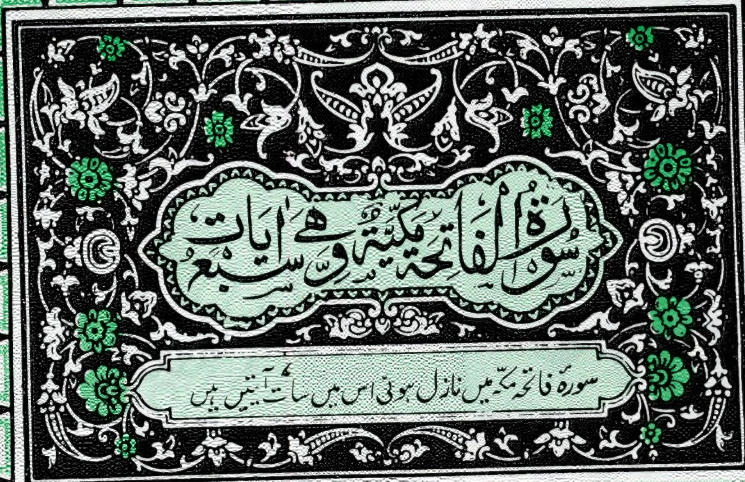 سُوْرَةُ الْفَاتِحَةِ مَكِّيَّةٌ وَّهِيَ سَبْعُ اٰيَات
سورۂ فاتحہ مکہ میں نازل ہوئی اس میں سات آیتیں ہیں